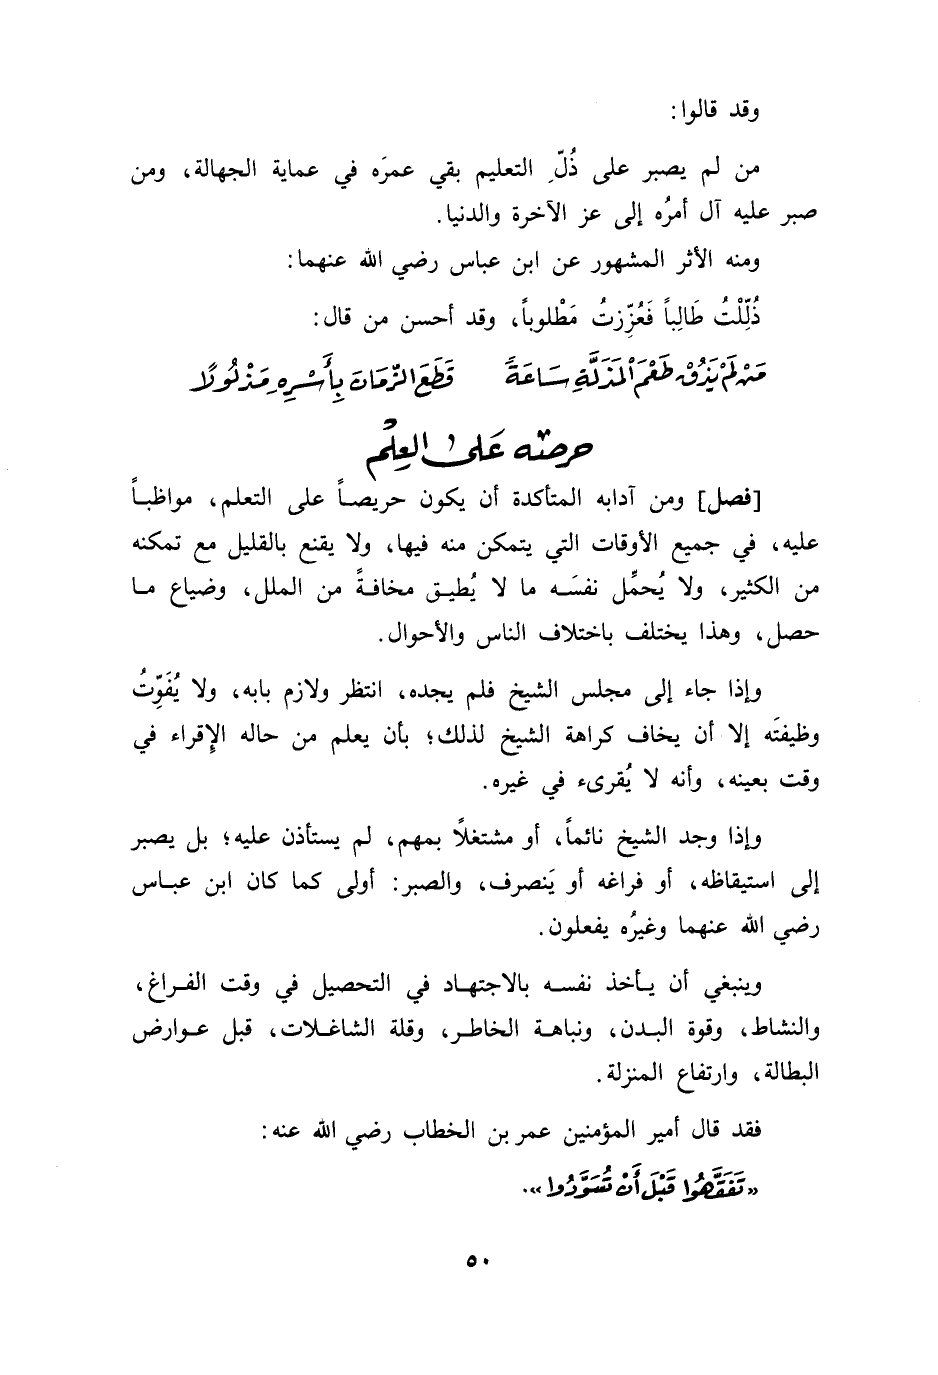 وقد قالوا:
من لم يصبر على ذُلّ التعليم بقي عمرَه في عماية الجهالة، ومن
صبر عليه آل أمرُه إلى عز الآخرة والدنيا.
ومنه الأثر المشهور عن ابن عباس رضي الله عنهما:
ذُلِّلْتُ طَالِباً فَعُزِّزتُ مَطْلوباً، وقد أحسن من قال:
مَنْ لَمْ يَذُقْ طَعْمَ ٱلمَذَلَّةِ سَاعَةً قَطَعَ الزَّمَانَ بِأَسْرِهِ مَذْلُولًا
حرصُه عَلى العِلْم
[فصل] ومن آدابه المتأكدة أن يكون حريصاً على التعلم، مواظباً
عليه، في جميع الأوقات التي يتمكن منه فيها، ولا يقنع بالقليل مع تمكنه
من الكثير، ولا يُحمِّل نفسَه ما لا يُطيق مخافةً من الملل، وضياع ما
حصل، وهذا يختلف باختلاف الناس والأحوال.
وإذا جاء إلى مجلس الشيخ فلم يجده، انتظر ولازم بابه، ولا يُفَوِّتُ
وظيفتَه إلا أن يخاف كراهة الشيخ لذلك؛ بأن يعلم من حاله الإقراء في
وقت بعينه، وأنه لا يُقرىء في غيره.
وإذا وجد الشيخ نائماً، أو مشتغلًا بمهم، لم يستأذن عليه؛ بل يصبر
إلى استيقاظه، أو فراغه أو يَنصرف، والصبر: أولى كما كان ابن عباس
رضي الله عنهما وغيرُه يفعلون.
وينبغي أن يأخذ نفسه بالاجتهاد في التحصيل في وقت الفراغ،
والنشاط، وقوة البدن، ونباهة الخاطر، وقلة الشاغلات، قبل عوارض
البطالة، وارتفاع المنزلة.
فقد قال أمير المؤمنين عمر بن الخطاب رضي الله عنه:
«تَفَقَّهُوا قَبْلَ أَنْ تُسَوَّدُوا».
٥٠